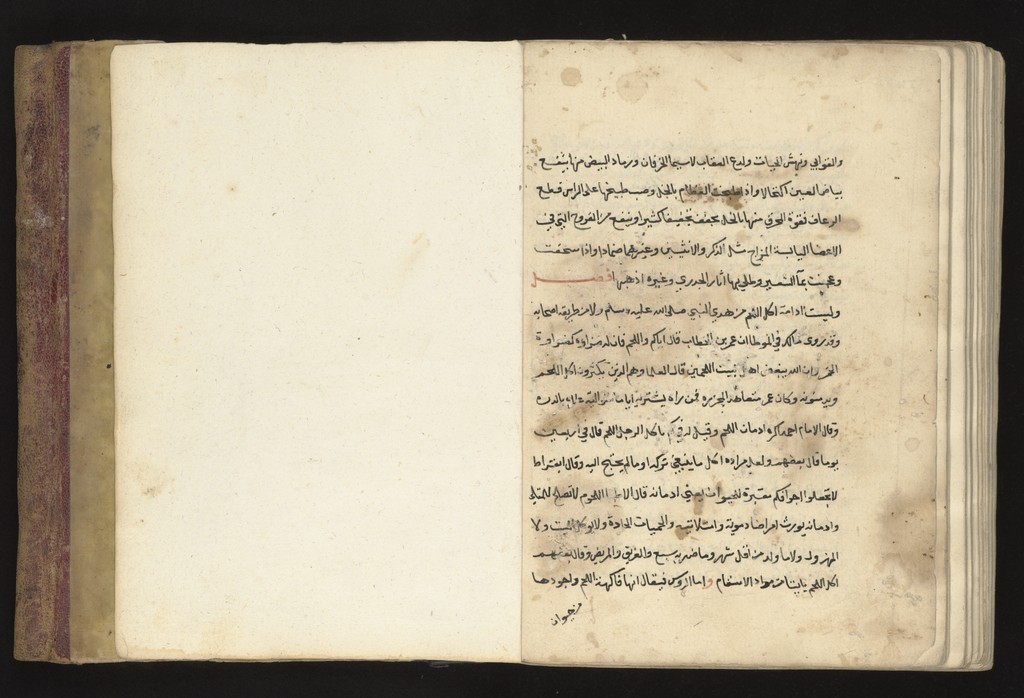 والقوابي ونهش الحيات ولدغ العقارب لاسيما الخرفان ورماد البيض منها ينفع
بياض العين اكتحالا واذا طبخت العظام بالخل وصب طبيخها على الراس قطع
الرعاف بقوة المحرق منها بالخل يجفف تجفيفا كثيرا وينفع من القروح التي في
الاعضا اليابسة المزاج مثل الذكر والانثيين وغيرهما ضمادا واذا سحقت
وعجنت بماء الشعير وطلي بها اثار الجدري وغيره اذهبها فصل
وليست ادامة اكل اللحم من هدي النبي صلى الله عليه وسلم ولا من طريقة اصحابه
وقد روى مالك في الموطا ان عمر بن الخطاب قال اياكم واللحم فان له ضراوة كضراوة
الخمر وان الله يبغض اهل بيت اللحمين قال العلما وهم الذين يكثرون اكل اللحم
ويدمنونه وكان عمر يتعاهد المجزرة فمن راه يشتريه اياما متوالية علاه بالدرة
وقال الامام احمد اكره ادمان اللحم وقيل له في كم ياكل الرجل اللحم قال في اربعين
يوما قال بعضهم ولعل مراده اكل ما ينبغي تركه او ما لم يحتج اليه وقال ابقراط
لا تجعلوا اجوافكم مقبرة للحيوان يعني ادمانه قال اللحوم لا تصلح
وادمانه يورث امراضا دموية وامتلائية والحميات الحادة ولا يوكل الميت ولا
المهزول ولا ما ولد من اقل شهر وما ضربه سبع والغريق والمريض وقال بعضهم
اكل اللحم بايتا من مواد الاسقام واما الروس فيقال انها فاكهة اللحم واجودها
من حيوان